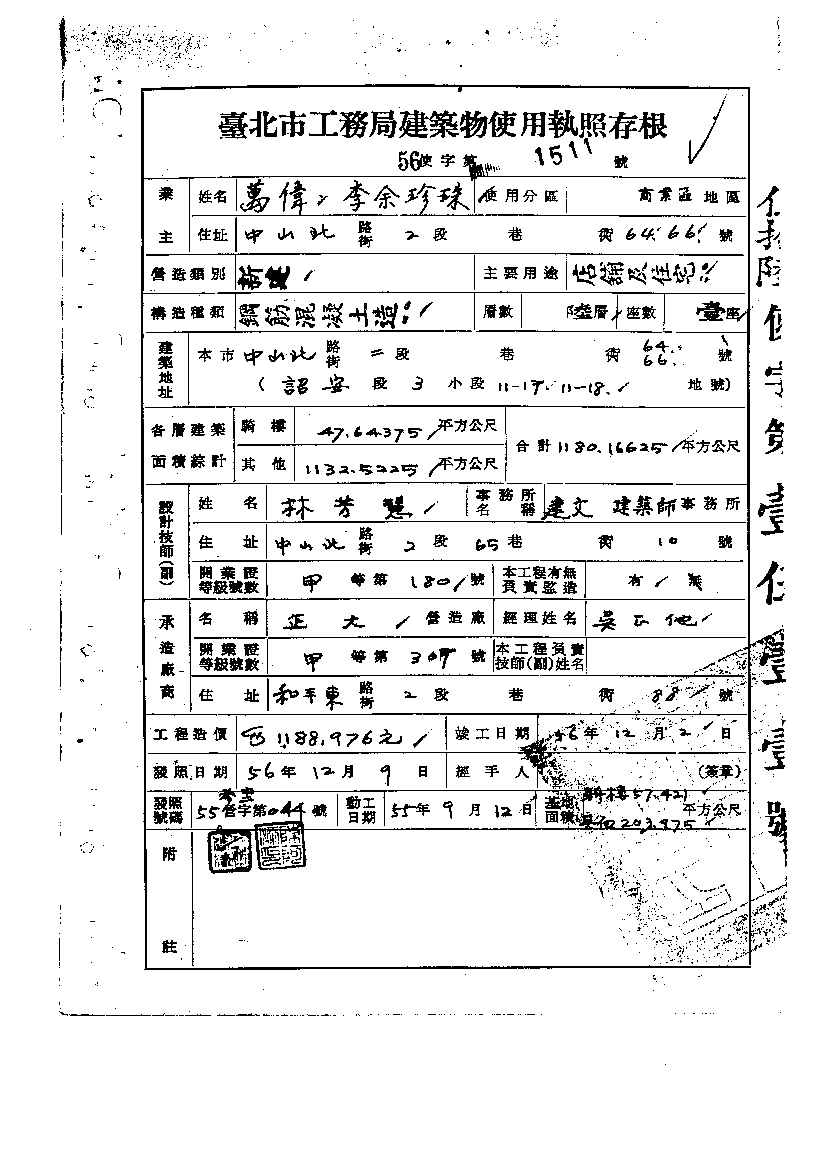 臺北市工務局建築物使用執照存根
56使字第 1511 號
業主 姓名 萬偉、李余珍珠 使用分區 商業區 地區
住址 中山北 路街 2 段 巷 街 64.66. 號
營造類別 新建 主要用途 店舖及住宅
構造種類 鋼筋混凝土造 層數 陸層 座數 壹座
建築地址 本市 中山北 路街 二段 巷 街 64. 66. 號
( 詔安 段 3 小段 11-17. 11-18. 地號)
各層建築面積綜計 騎樓 47.64375 平方公尺 合計 1180.16625 平方公尺
其他 1132.5225 平方公尺
設計技師(副) 姓名 林芳慧 事務所名稱 建文 建築師事務所
住址 中山北 路街 2 段 65 巷 街 10 號
開業證等級號數 甲 等第 180 號 本工程有無負責監造 有 無
承造廠商 名稱 正大 營造廠 經理姓名 吳
開業證等級號數 甲 等第 307 號 本工程負責技師(副)姓名
住址 和平東 路街 2 段 巷 街 88 號
工程造價 1188.976元 竣工日期 56年 12月 2日
發照日期 56年 12月 9日 經手人 (簽章)
發照號碼 55營字第044號 動工日期 55年 9月 12日 基地面積 騎樓57.421 其他203.975 平方公尺
附註
使字第壹伍壹壹號